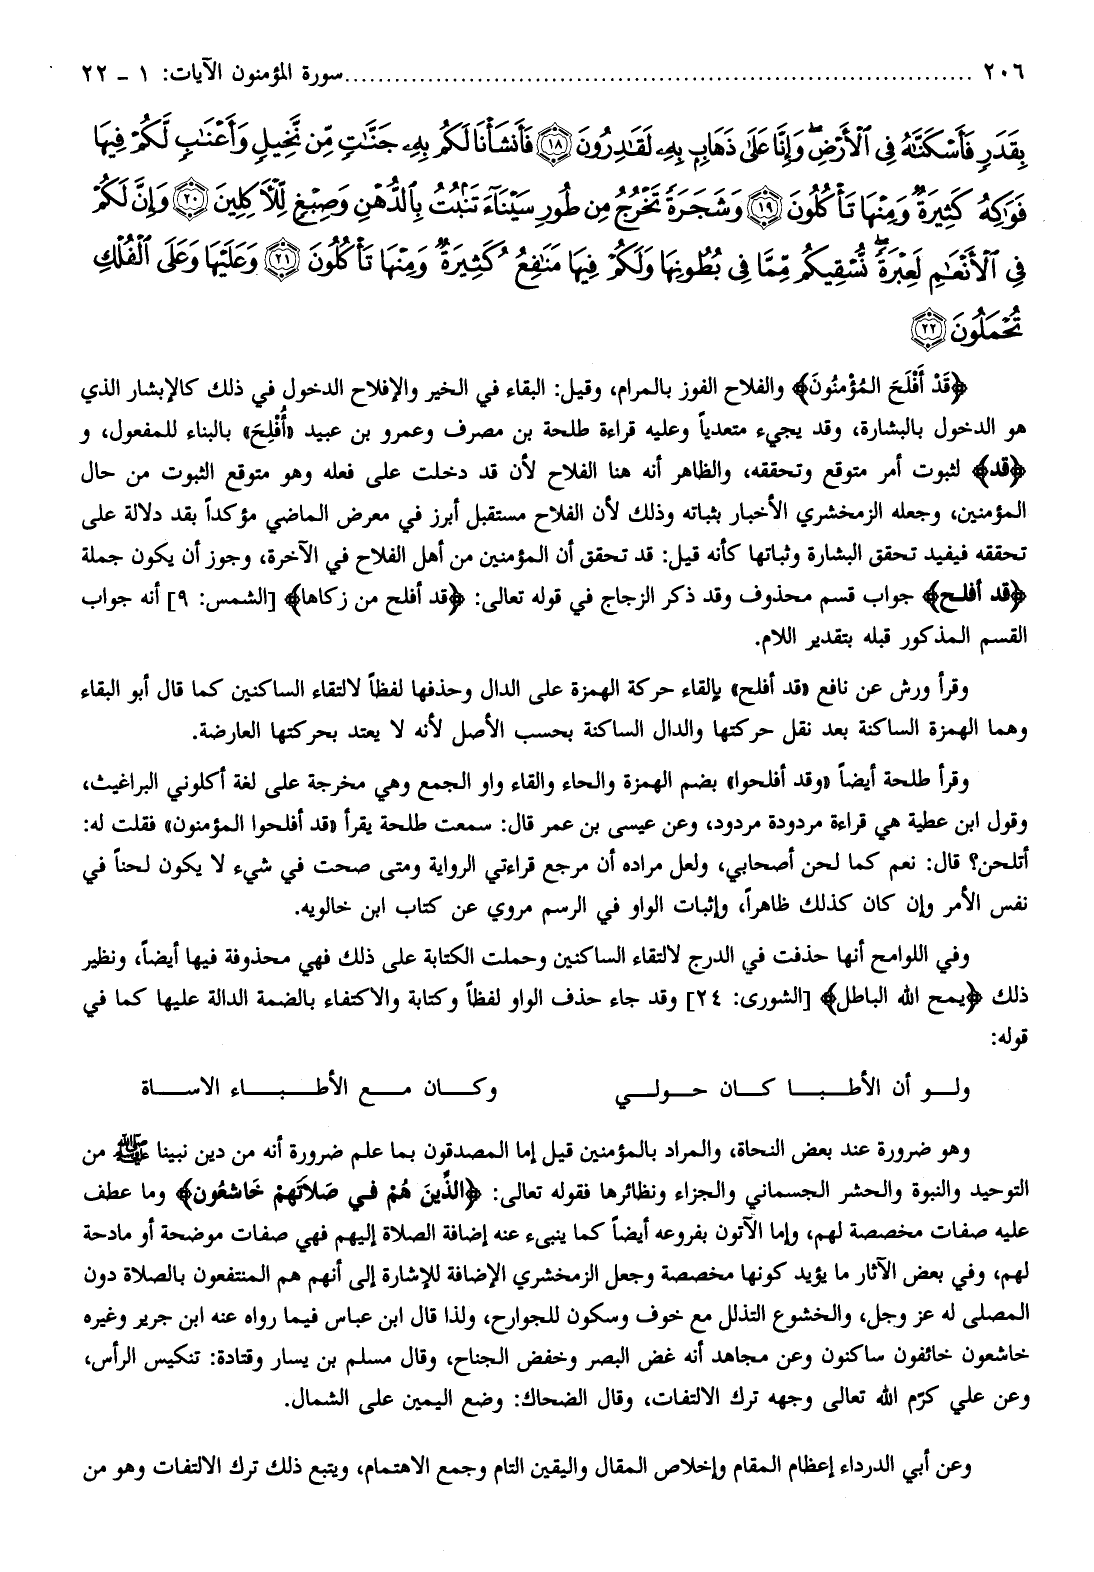 ٢٠٦ ........................................................................... سورة المؤمنون الآيات: ١ - ٢٢
بِقَدَرٍ فَأَسْكَنَّاهُ فِي الْأَرْضِ وَإِنَّا عَلَىٰ ذَهَابٍ بِهِ لَقَادِرُونَ ﴿١٨﴾ فَأَنشَأْنَا لَكُم بِهِ جَنَّاتٍ مِّن نَّخِيلٍ وَأَعْنَابٍ لَّكُمْ فِيهَا
فَوَاكِهُ كَثِيرَةٌ وَمِنْهَا تَأْكُلُونَ ﴿١٩﴾ وَشَجَرَةً تَخْرُجُ مِن طُورِ سَيْنَاءَ تَنبُتُ بِالدُّهْنِ وَصِبْغٍ لِّلْآكِلِينَ ﴿٢٠﴾ وَإِنَّ لَكُمْ
فِي الْأَنْعَامِ لَعِبْرَةً نُّسْقِيكُم مِّمَّا فِي بُطُونِهَا وَلَكُمْ فِيهَا مَنَافِعُ كَثِيرَةٌ وَمِنْهَا تَأْكُلُونَ ﴿٢١﴾ وَعَلَيْهَا وَعَلَى الْفُلْكِ
تُحْمَلُونَ ﴿٢٢﴾
﴿قَدْ أَفْلَحَ المُؤْمِنُونَ﴾ والفلاح الفوز بالمرام، وقيل: البقاء في الخير والإفلاح الدخول في ذلك كالإبشار الذي
هو الدخول بالبشارة، وقد يجيء متعدياً وعليه قراءة طلحة بن مصرف وعمرو بن عبيد «أُفْلِحَ» بالبناء للمفعول، و
﴿قد﴾ لثبوت أمر متوقع وتحققه، والظاهر أنه هنا الفلاح لأن قد دخلت على فعله وهو متوقع الثبوت من حال
المؤمنين، وجعله الزمخشري الأخبار بثباته وذلك لأن الفلاح مستقبل أبرز في معرض الماضي مؤكداً بقد دلالة على
تحققه فيفيد تحقق البشارة وثباتها كأنه قيل: قد تحقق أن المؤمنين من أهل الفلاح في الآخرة، وجوز أن يكون جملة
﴿قد أفلح﴾ جواب قسم محذوف وقد ذكر الزجاج في قوله تعالى: ﴿قد أفلح من زكاها﴾ [الشمس: ٩] أنه جواب
القسم المذكور قبله بتقدير اللام.
وقرأ ورش عن نافع «قد أفلح» بإلقاء حركة الهمزة على الدال وحذفها لفظاً لالتقاء الساكنين كما قال أبو البقاء
وهما الهمزة الساكنة بعد نقل حركتها والدال الساكنة بحسب الأصل لأنه لا يعتد بحركتها العارضة.
وقرأ طلحة أيضاً «وقد أفلحوا» بضم الهمزة والحاء والقاء واو الجمع وهي مخرجة على لغة أكلوني البراغيث،
وقول ابن عطية هي قراءة مردودة مردود، وعن عيسى بن عمر قال: سمعت طلحة يقرأ «قد أفلحوا المؤمنون» فقلت له:
أتلحن؟ قال: نعم كما لحن أصحابي، ولعل مراده أن مرجع قراءتي الرواية ومتى صحت في شيء لا يكون لحناً في
نفس الأمر وإن كان كذلك ظاهراً، وإثبات الواو في الرسم مروي عن كتاب ابن خالويه.
وفي اللوامح أنها حذفت في الدرج لالتقاء الساكنين وحملت الكتابة على ذلك فهي محذوفة فيها أيضاً، ونظير
ذلك ﴿يمح الله الباطل﴾ [الشورى: ٢٤] وقد جاء حذف الواو لفظاً وكتابة والاكتفاء بالضمة الدالة عليها كما في
قوله:
ولـو أن الأطـبـا كـان حـولـي وكـان مـع الأطـبـاء الاسـاة
وهو ضرورة عند بعض النحاة، والمراد بالمؤمنين قيل إما المصدقون بما علم ضرورة أنه من دين نبينا ﷺ من
التوحيد والنبوة والحشر الجسماني والجزاء ونظائرها فقوله تعالى: ﴿الَّذِينَ هُمْ فِي صَلَاتَهِمْ خَاشعُون﴾ وما عطف
عليه صفات مخصصة لهم، وإما الآتون بفروعه أيضاً كما ينبىء عنه إضافة الصلاة إليهم فهي صفات موضحة أو مادحة
لهم، وفي بعض الآثار ما يؤيد كونها مخصصة وجعل الزمخشري الإضافة للإشارة إلى أنهم هم المنتفعون بالصلاة دون
المصلى له عز وجل، والخشوع التذلل مع خوف وسكون للجوارح، ولذا قال ابن عباس فيما رواه عنه ابن جرير وغيره
خاشعون خائفون ساكنون وعن مجاهد أنه غض البصر وخفض الجناح، وقال مسلم بن يسار وقتادة: تنكيس الرأس،
وعن علي كرّم الله تعالى وجهه ترك الالتفات، وقال الضحاك: وضع اليمين على الشمال.
وعن أبي الدرداء إعظام المقام وإخلاص المقال واليقين التام وجمع الاهتمام، ويتبع ذلك ترك الالتفات وهو من